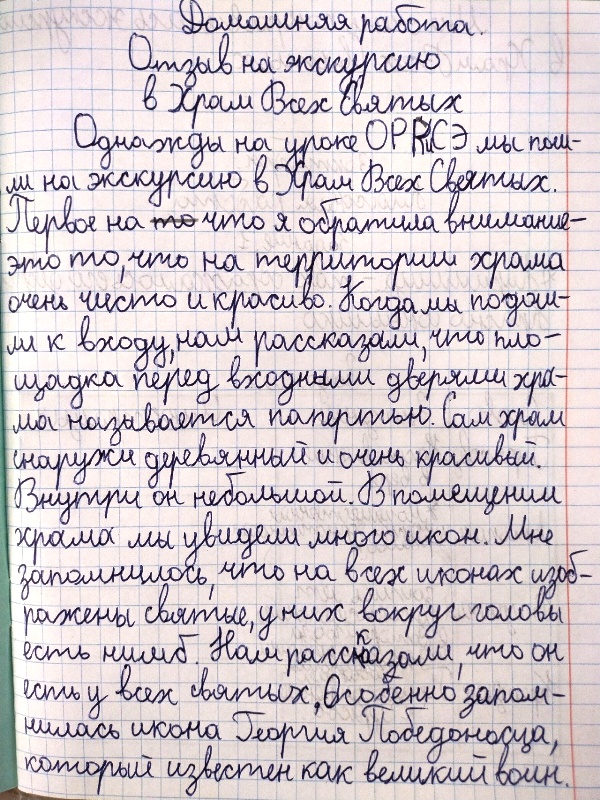 Домашняя работа.
Отзыв на экскурсию
в Храм Всех Святых
Однажды на уроке ОРКСЭ мы пош-
ли на экскурсию в Храм Всех Святых.
Первое на то что я обратила внимание-
это то, что на территории храма
очень чисто и красиво. Когда мы подош-
ли к входу, нам рассказали, что пло-
щадка перед входными дверями хра-
ма называется папертью. Сам храм
снаружи деревянный и очень красивый.
Внутри он небольшой. В помещении
храма мы увидели много икон. Мне
запомнилось, что на всех иконах изоб-
ражены святые, у них вокруг головы
есть нимб. Нам рассказали, что он
есть у всех святых. Особенно запом-
нилась икона Георгия Победоносца,
который известен как великий воин.